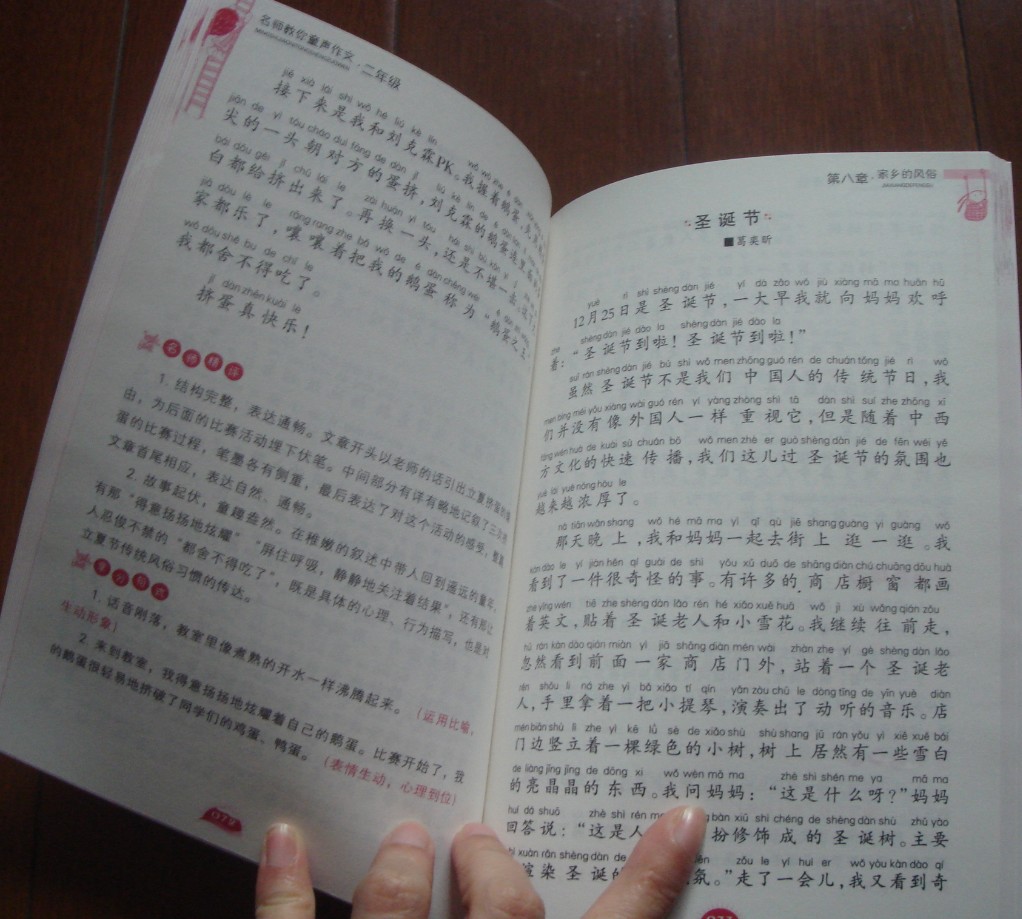 名师教你童声作文·二年级
jiē xià lái shì wǒ hé liú kè lín
接下来是我和刘克森PK。我握着鹅蛋，
jiān de yì tóu cháo duì fāng de dàn jǐ
尖的一头朝对方的蛋挤，刘克森的鹅蛋
bái dōu gěi jǐ chū lái le zài huàn yì tóu
白都给挤出来了。再换一头，还是不堪一击。
jiā dōu lè le rāng rang zhe bǎ wǒ de é dàn chēng wéi
家都乐了，嚷嚷着把我的鹅蛋称为“鹅蛋之王”
wǒ dōu shě bu de chī le
我都舍不得吃了。
jǐ dàn zhēn kuài lè
挤蛋真快乐！
名师精评
1. 结构完整，表达通畅。文章开头以老师的话引出立夏挤蛋的
由，为后面的比赛活动埋下伏笔。中间部分有详有略地记叙了三次挤
蛋的比赛过程，笔墨各有侧重，最后表达了对这个活动的感受，整篇
文章首尾相应，表达自然、通畅。
2. 故事起伏，童趣盎然。在稚嫩的叙述中带人回到遥远的童年，
有那“得意扬扬地炫耀”“屏住呼吸，静静地关注着结果”，还有那让
人忍俊不禁的“都舍不得吃了”，既是具体的心理、行为描写，也是对
立夏节传统风俗习惯的传达。
1. 话音刚落，教室里像煮熟的开水一样沸腾起来。（运用比喻，
生动形象）
2. 来到教室，我得意扬扬地炫耀着自己的鹅蛋。比赛开始了，我
的鹅蛋很轻易地挤破了同学们的鸡蛋、鸭蛋。（表情生动，心理到位）
072
第八章·家乡的风俗
JIAXIANGDEFENGSU
圣诞节
■葛奕昕
yuè rì shì shèng dàn jié yí dà zǎo wǒ jiù xiàng mā ma huān hū
12月25日是圣诞节，一大早我就向妈妈欢呼
zhe shèng dàn jié dào la shèng dàn jié dào la
着：“圣诞节到啦！圣诞节到啦！”
suī rán shèng dàn jié bú shì wǒ men zhōng guó rén de chuán tǒng jié rì wǒ
虽然圣诞节不是我们中国人的传统节日，我
men bìng méi yǒu xiàng wài guó rén yí yàng zhòng shì tā dàn shì suí zhe zhōng xī
们并没有像外国人一样重视它，但是随着中西
fāng wén huà de kuài sù chuán bō wǒ men zhè er guò shèng dàn jié de fēn wéi yě
方文化的快速传播，我们这儿过圣诞节的氛围也
yuè lái yuè nóng hòu le
越来越浓厚了。
nà tiān wǎn shang wǒ hé mā ma yì qǐ qù jiē shang guàng yi guàng wǒ
那天晚上，我和妈妈一起去街上逛一逛。我
kàn dào le yí jiàn hěn qí guài de shì yǒu xǔ duō de shāng diàn chú chuāng dōu huà
看到了一件很奇怪的事。有许多的商店橱窗都画
zhe yīng wén tiē zhe shèng dàn lǎo rén hé xiǎo xuě huā wǒ jì xù wǎng qián zǒu
着英文，贴着圣诞老人和小雪花。我继续往前走，
hū rán kàn dào qián miàn yì jiā shāng diàn mén wài zhàn zhe yí gè shèng dàn lǎo
忽然看到前面一家商店门外，站着一个圣诞老
rén shǒu li ná zhe yì bǎ xiǎo tí qín yǎn zòu chū le dòng tīng de yīn yuè diàn
人，手里拿着一把小提琴，演奏出了动听的音乐。店
mén biān shù lì zhe yì kē lǜ sè de xiǎo shù shù shang jū rán yǒu yì xiē xuě bái
门边竖立着一棵绿色的小树，树上居然有一些雪白
de liàng jīng jīng de dōng xi wǒ wèn mā ma zhè shì shén me ya mā ma
的亮晶晶的东西。我问妈妈：“这是什么呀？”妈妈
huí dá shuō zhè shì rén bàn xiū shì chéng de shèng dàn shù zhǔ yào
回答说：“这是人 扮修饰成的圣诞树。主要
xuàn rǎn shèng dàn de zǒu le yí huì er wǒ yòu kàn dào qí
渲染圣诞的 氛。”走了一会儿，我又看到奇